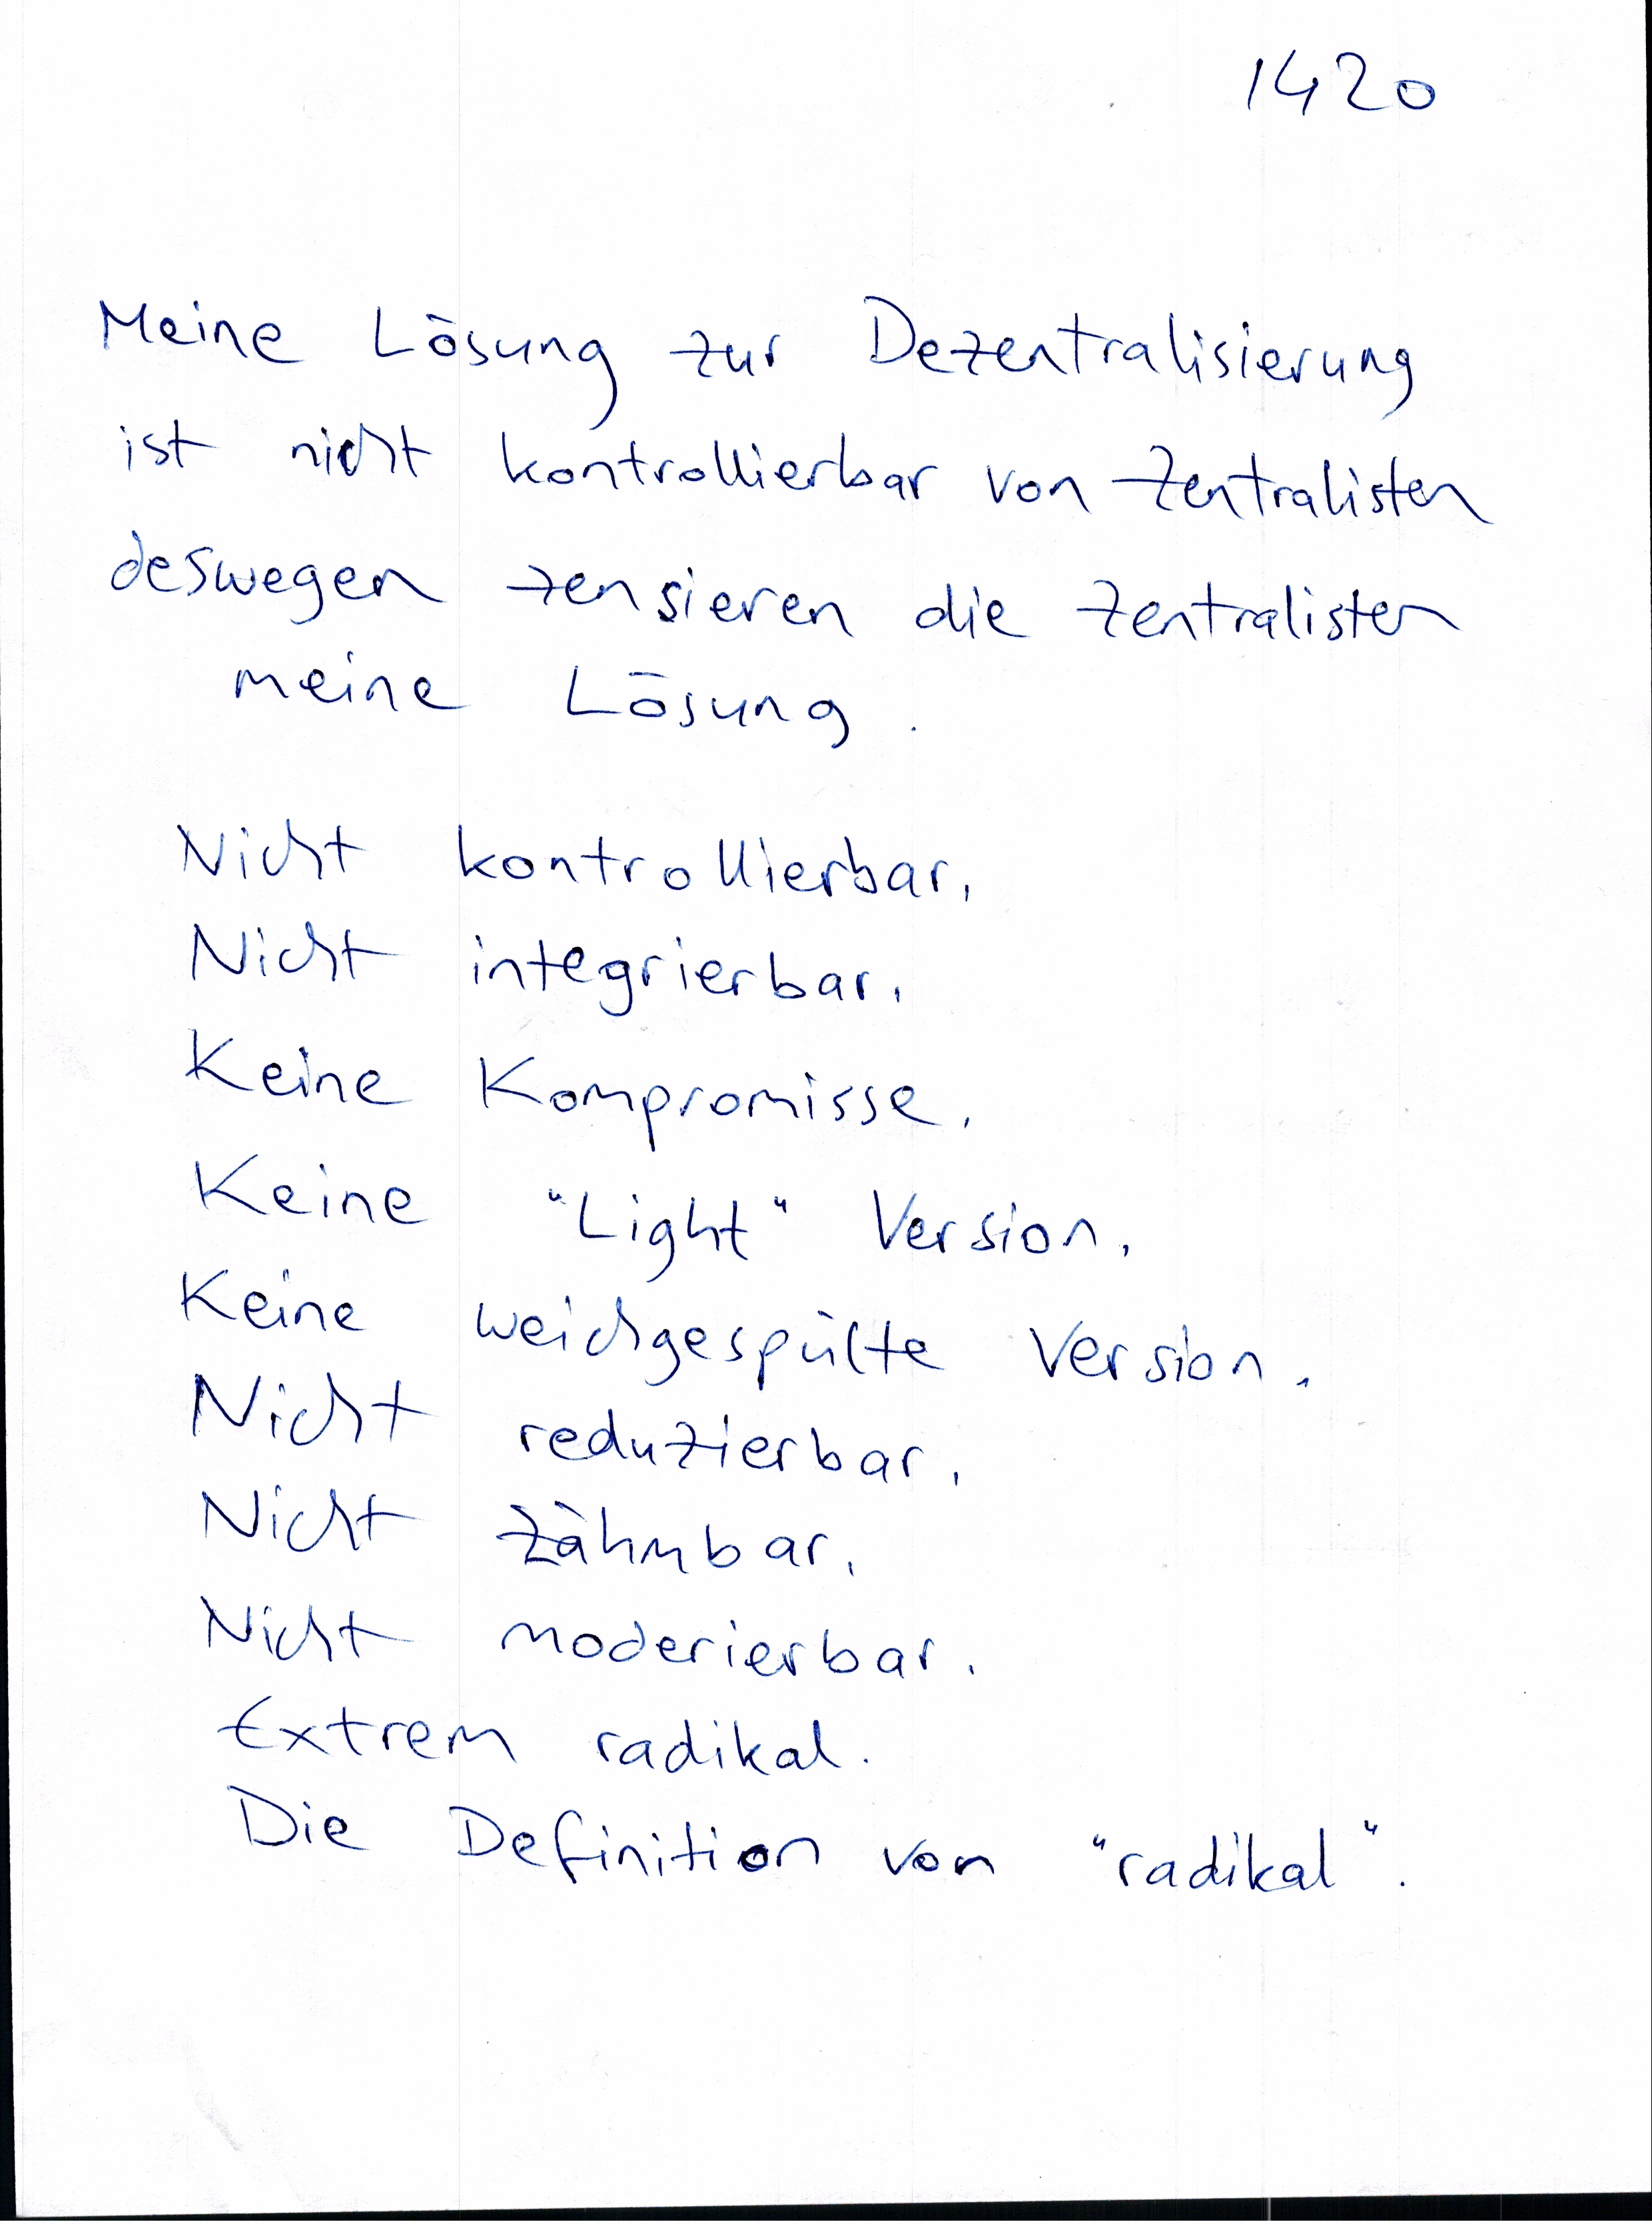 1420
Meine Lösung zur Dezentralisierung
ist nicht kontrollierbar von Zentralisten
deswegen zensieren die Zentralisten
meine Lösung.
Nicht kontrollierbar.
Nicht integrierbar.
Keine Kompromisse.
Keine "Light" Version.
Keine weichgespülte Version.
Nicht reduzierbar.
Nicht zähmbar.
Nicht moderierbar.
Extrem radikal.
Die Definition von "radikal".